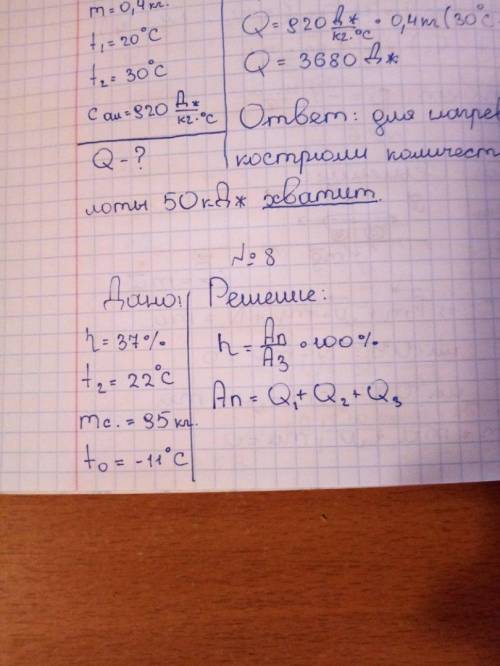 m = 0,4 кг.
t₁ = 20°C
t₂ = 30°C
C ал = 920 Дж/кг·°C
Q - ?
Q = 920 Дж/кг·°C · 0,4 кг (30°C
Q = 3680 Дж
Ответ: для нагрев
кострюли количест
лоты 50 кДж хватит.
№ 8
Дано:
η = 37%
t₂ = 22°C
mс. = 95 кг.
t₀ = -11°C
Решение:
η = Aп/Aз · 100%
Aп = Q₁ + Q₂ + Q₃